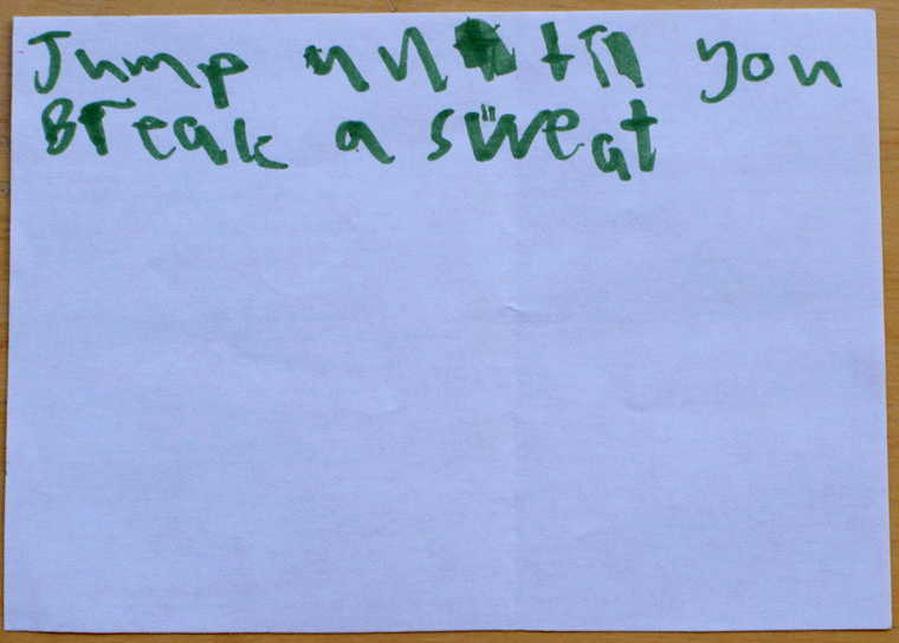 Jump until you
Break a sweat